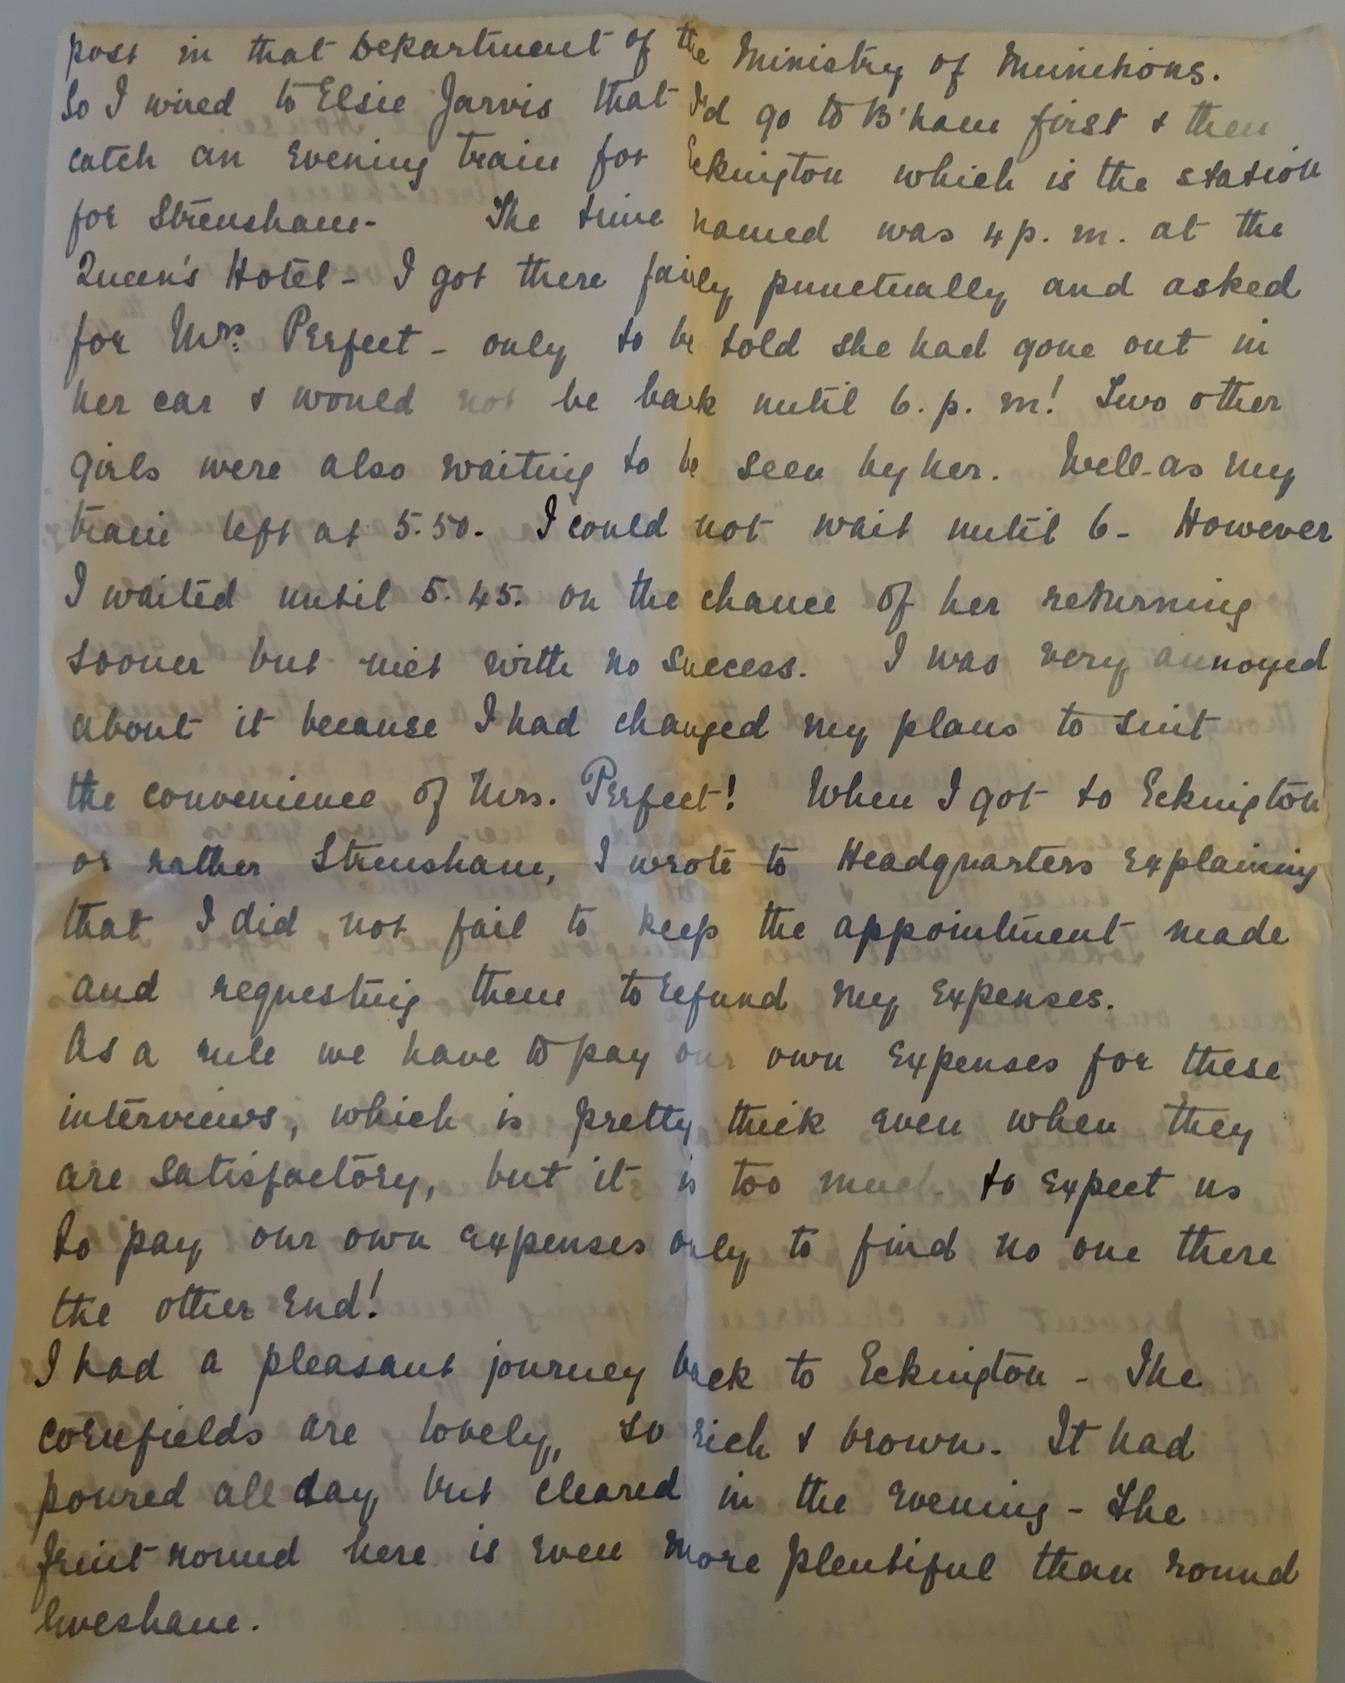 post in that Department of the Ministry of Munitions.
So I wired to Elsie Jarvis that I'd go to B'ham first & then
catch an evening train for Eckington which is the station
for Strensham - The time named was 4 p. m. at the
Queen's Hotel - I got there fairly punctually and asked
for Mrs. Perfect - only to be told she had gone out in
her car & would not be back until 6. p. m! Two other
girls were also waiting to be seen by her. Well - as my
train left at 5.50. I could not wait until 6 - However
I waited until 5. 45. on the chance of her returning
sooner but met with no success. I was very annoyed
about it because I had changed my plans to suit
the convenience of Mrs. Perfect! When I got to Eckington
or rather Strensham, I wrote to Headquarters explaining
that I did not fail to keep the appointment made
and requesting them to refund my expenses.
As a rule we have to pay our own expenses for these
interviews, which is pretty thick even when they
are satisfactory, but it is too much to expect us
to pay our own expenses only to find no one there
the other end!
I had a pleasant journey back to Eckington - The
cornfields are lovely, so rich & brown. It had
poured all day but cleared in the evening - The
fruit round here is even more plentiful than round
Evesham.